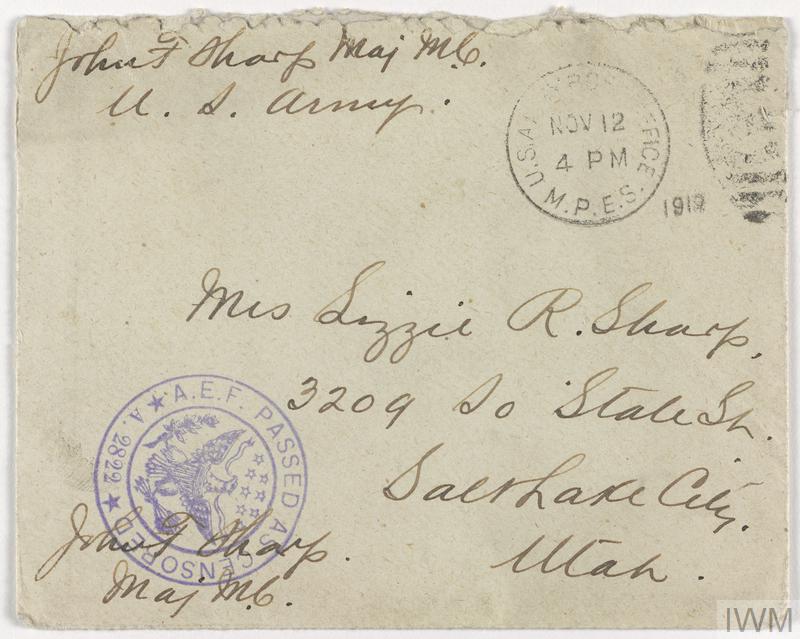 John F Sharp Maj M.C.
U. S. Army.
U.S. ARMY POST OFFICE
NOV 12
4 PM
M.P.E.S.
Mrs Lizzie R. Sharp,
3209 So State St.
Salt Lake City.
Utah.
A.E.F. PASSED AS CENSORED
A. 2822
John F Sharp.
Maj M.C.
IWM